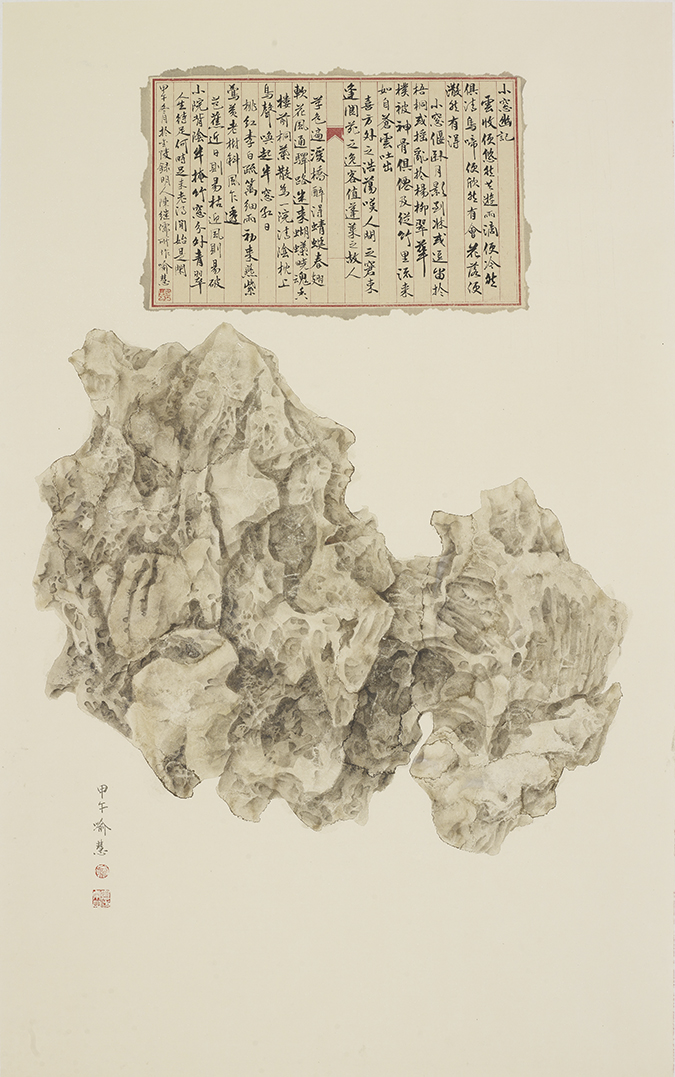 小窓幽記
雲收便悠然共遊雨滴便冷然
俱清鳥啼便欣然有會花落便
灑然有得
小窓偃卧月影到牀或逗留於
梧桐或搖亂於楊柳翠華
撲被神骨俱僊及從竹里流來
如自蒼雲吐出
喜方外之浩蕩嘆人間之窘束
逢閬苑之逸客值蓬萊之故人
草色遍溪橋醉得蜻蜓春翅
軟花風通驛路迷來蝴蝶曉魂香
樓前桐葉散為一院清陰枕上
鳥聲喚起半窓紅日
桃紅李白疏籬細雨初來燕紫
鶯黃老樹斜風乍透
芭蕉近日則易枯近風則易破
小院背陰半掩竹窓分外青翠
人生待足何時足未老得閒始是閒
甲午月於金陵錄明人陳繼儒所作喻慧
甲午喻慧